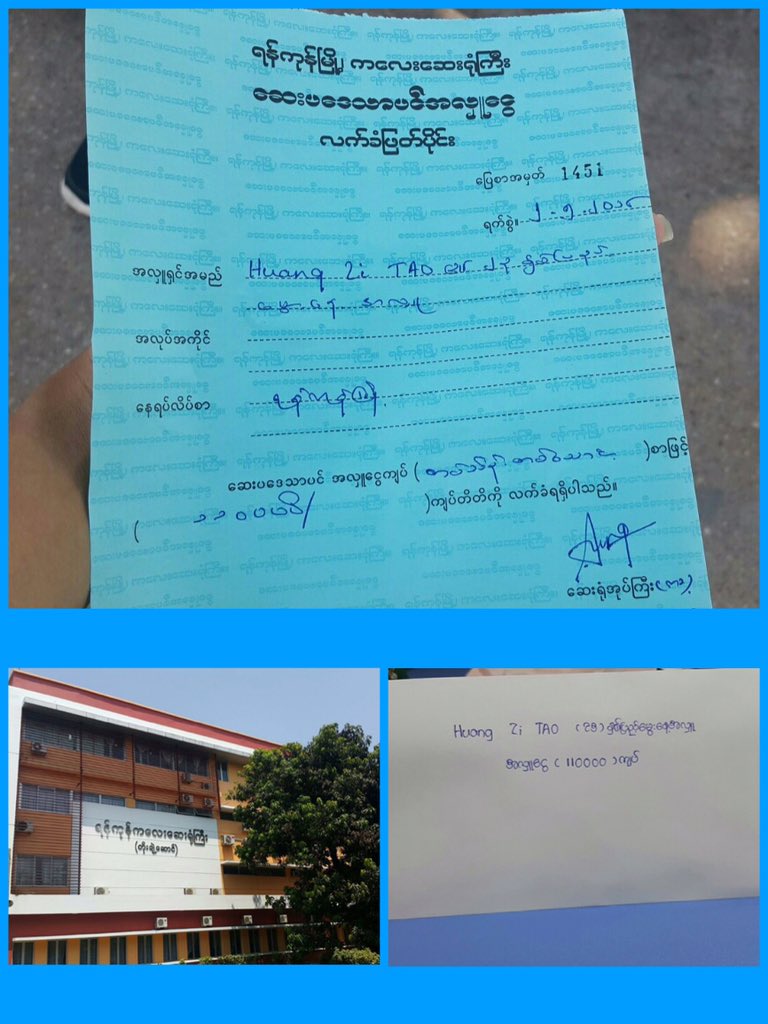 ရန်ကုန်မြို့ ကလေးဆေးရုံကြီး
ဆေးပဒေသာပင်အလှူငွေ
လက်ခံဖြတ်ပိုင်း
ပြေစာအမှတ် 1451
ရက်စွဲ။
အလှူရှင်အမည် Huang Zi TAO ၏
မွေးနေ့ အလှူ
အလုပ်အကိုင်
နေရပ်လိပ်စာ ရန်ကုန်မြို့
ဆေးပဒေသာပင် အလှူငွေကျပ် ( တစ်သိန်းတစ်သောင်း )စာဖြင့်
( ၁၁၀၀၀၀ိ/ )ကျပ်တိတိကို လက်ခံရရှိပါသည်။
ဆေးရုံအုပ်ကြီး(ကိုယ်စား)
ရန်ကုန်ကလေးဆေးရုံကြီး
(တိုးချဲ့ဆောင်)
Huang Zi TAO (၂၅) နှစ်ပြည့်မွေးနေ့အလှူ
အလှူငွေ ( 110000 ) ကျပ်